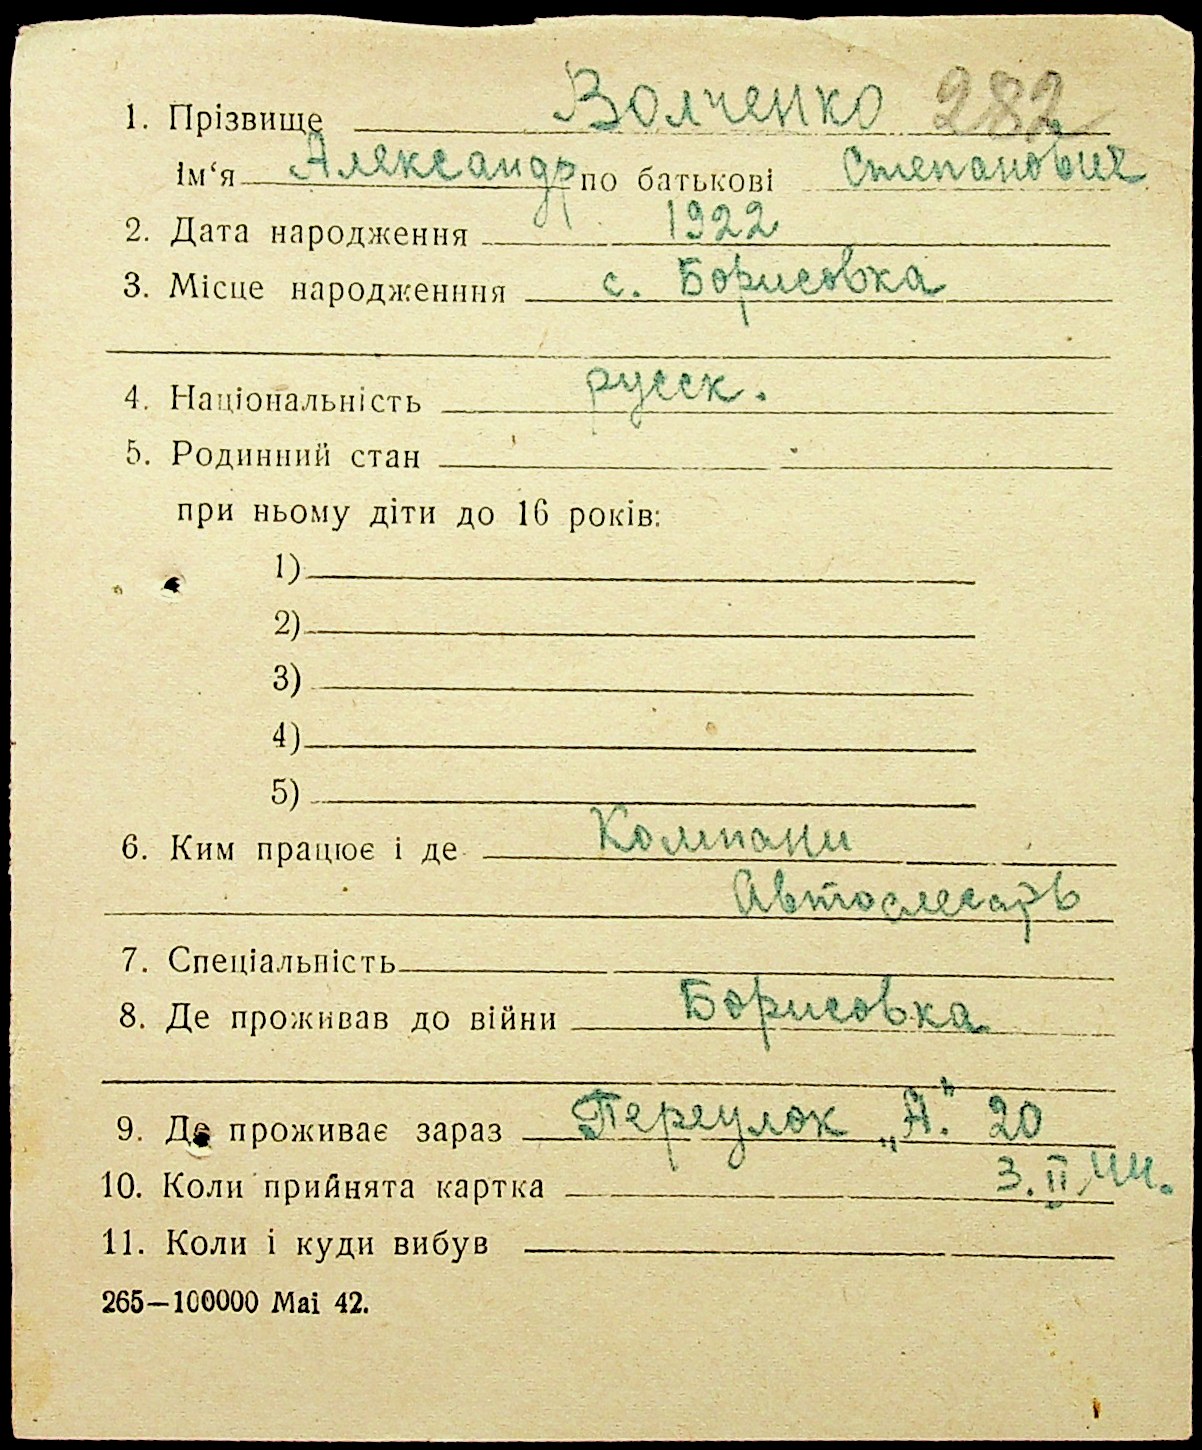 1. Прізвище Волченко 282
Ім‘я Александр по батькові Степанович
2. Дата народження 1922
3. Місце народженння с. Борисовка
4. Національність русск.
5. Родинний стан
при ньому діти до 16 років:
1)
2)
3)
4)
5)
6. Ким працює і де Компани
Автослесарь
7. Спеціальність
8. Де проживав до війни Борисовка
9. Де проживає зараз Переулок „А." 20
10. Коли прийнята картка 3.II 44.
11. Коли і куди вибув
265—100000 Mai 42.